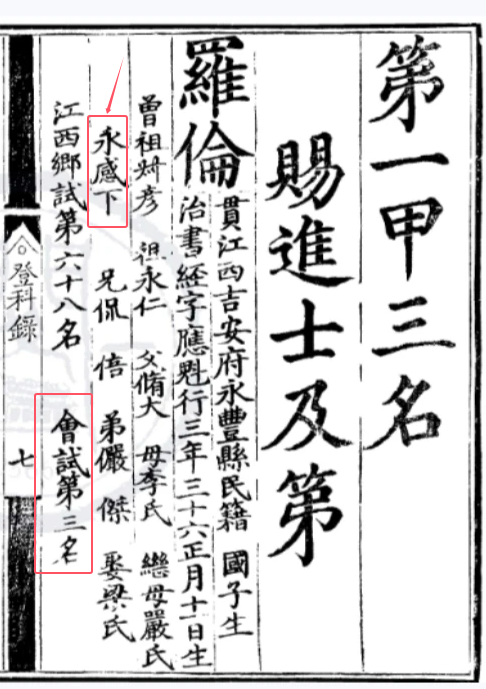 第一甲三名
賜進士及第
羅倫
貫江西吉安府永豐縣民籍 國子生
治書經字應魁行三年三十六正月十一日生
曾祖 彥 祖永仁 父脩大 母李氏 繼母嚴氏
永感下 兄侃 倍 弟儼 傑 娶梁氏
江西鄉試第六十八名 會試第三名
登科錄
七